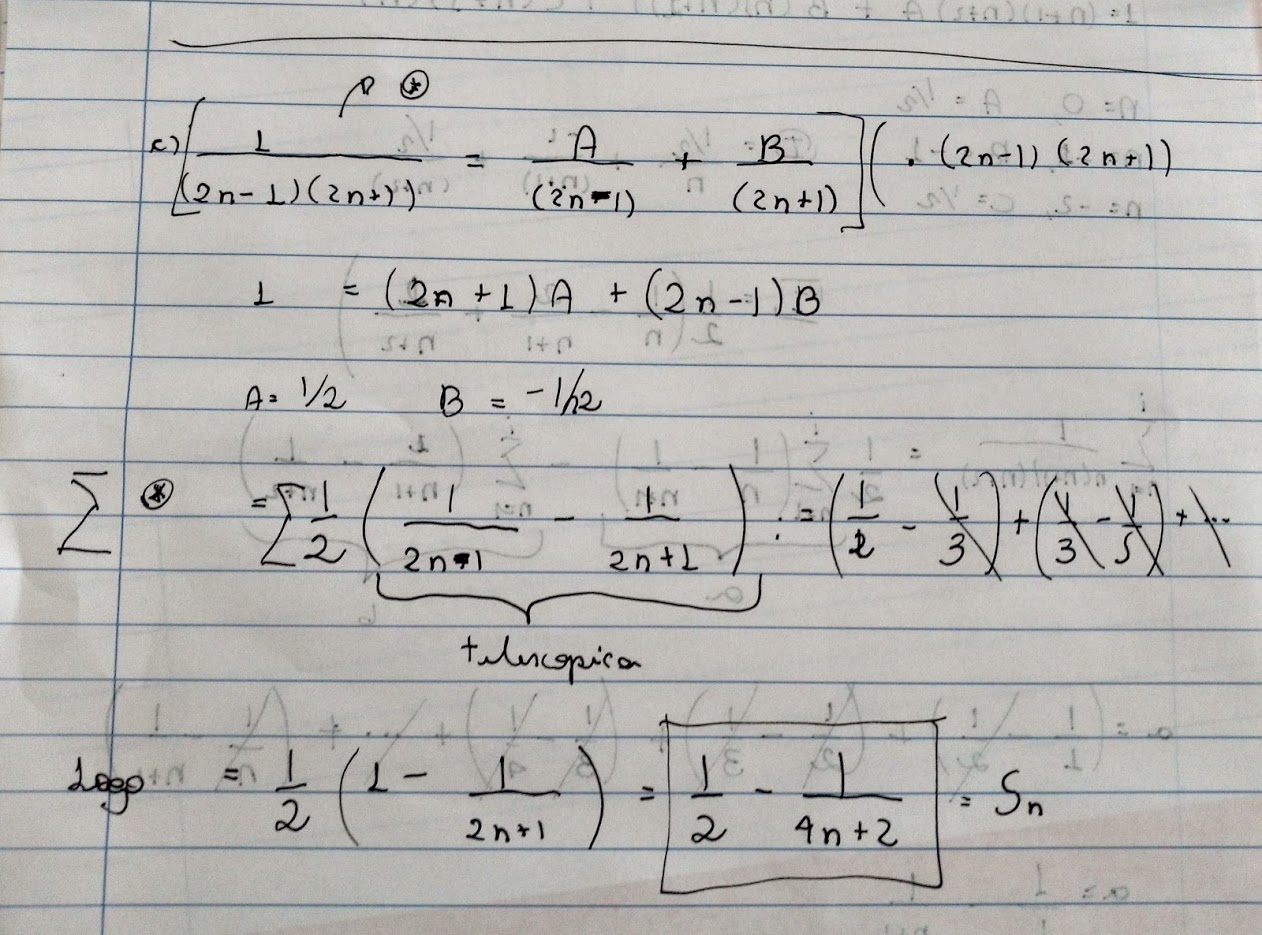 c) [ 1/((2n-1)(2n+1)) = A/(2n-1) + B/(2n+1) ] ( . (2n-1) (2n+1)
1 = (2n+1)A + (2n-1)B
A= 1/2 B = -1/2
∑ (*) = ∑ 1/2 ( 1/(2n-1) - 1/(2n+1) ) := (1/2 - 1/3) + (1/3 - 1/5) + ...
telescopica
Logo = 1/2 ( 1 - 1/(2n+1) ) = 1/2 - 1/(4n+2) = Sn